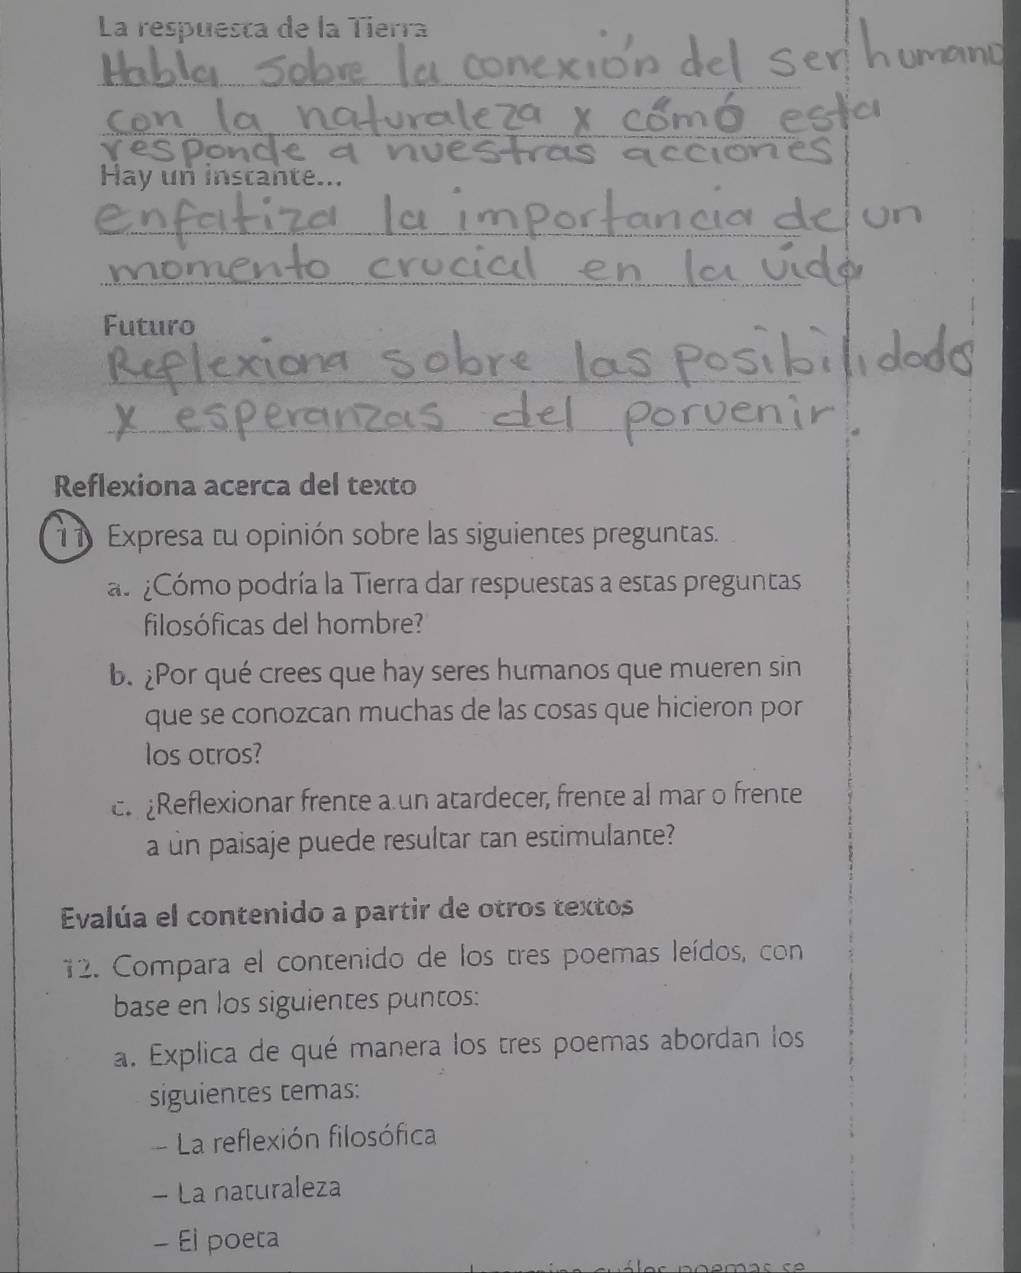 La respuesta de la Tierra
Habla sobre la conexión del ser humano
con la naturaleza x cómo esta
responde a nuestras acciones
Hay un instante...
enfatiza la importancia de un
momento crucial en la vida
Futuro
Reflexiona sobre las posibilidades
x esperanzas del porvenir.
Reflexiona acerca del texto
11 Expresa tu opinión sobre las siguientes preguntas.
a. ¿Cómo podría la Tierra dar respuestas a estas preguntas
filosóficas del hombre?
b. ¿Por qué crees que hay seres humanos que mueren sin
que se conozcan muchas de las cosas que hicieron por
los otros?
c. ¿Reflexionar frente a un atardecer, frente al mar o frente
a un paisaje puede resultar tan estimulante?
Evalúa el contenido a partir de otros textos
12. Compara el contenido de los tres poemas leídos, con
base en los siguientes puntos:
a. Explica de qué manera los tres poemas abordan los
siguientes temas:
– La reflexión filosófica
– La naturaleza
– El poeta
cuáles poemas se